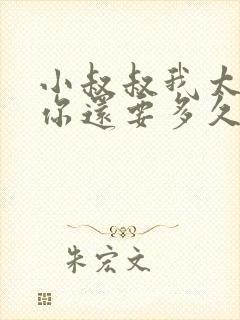 小叔叔我太
你還要多久
朱宏文